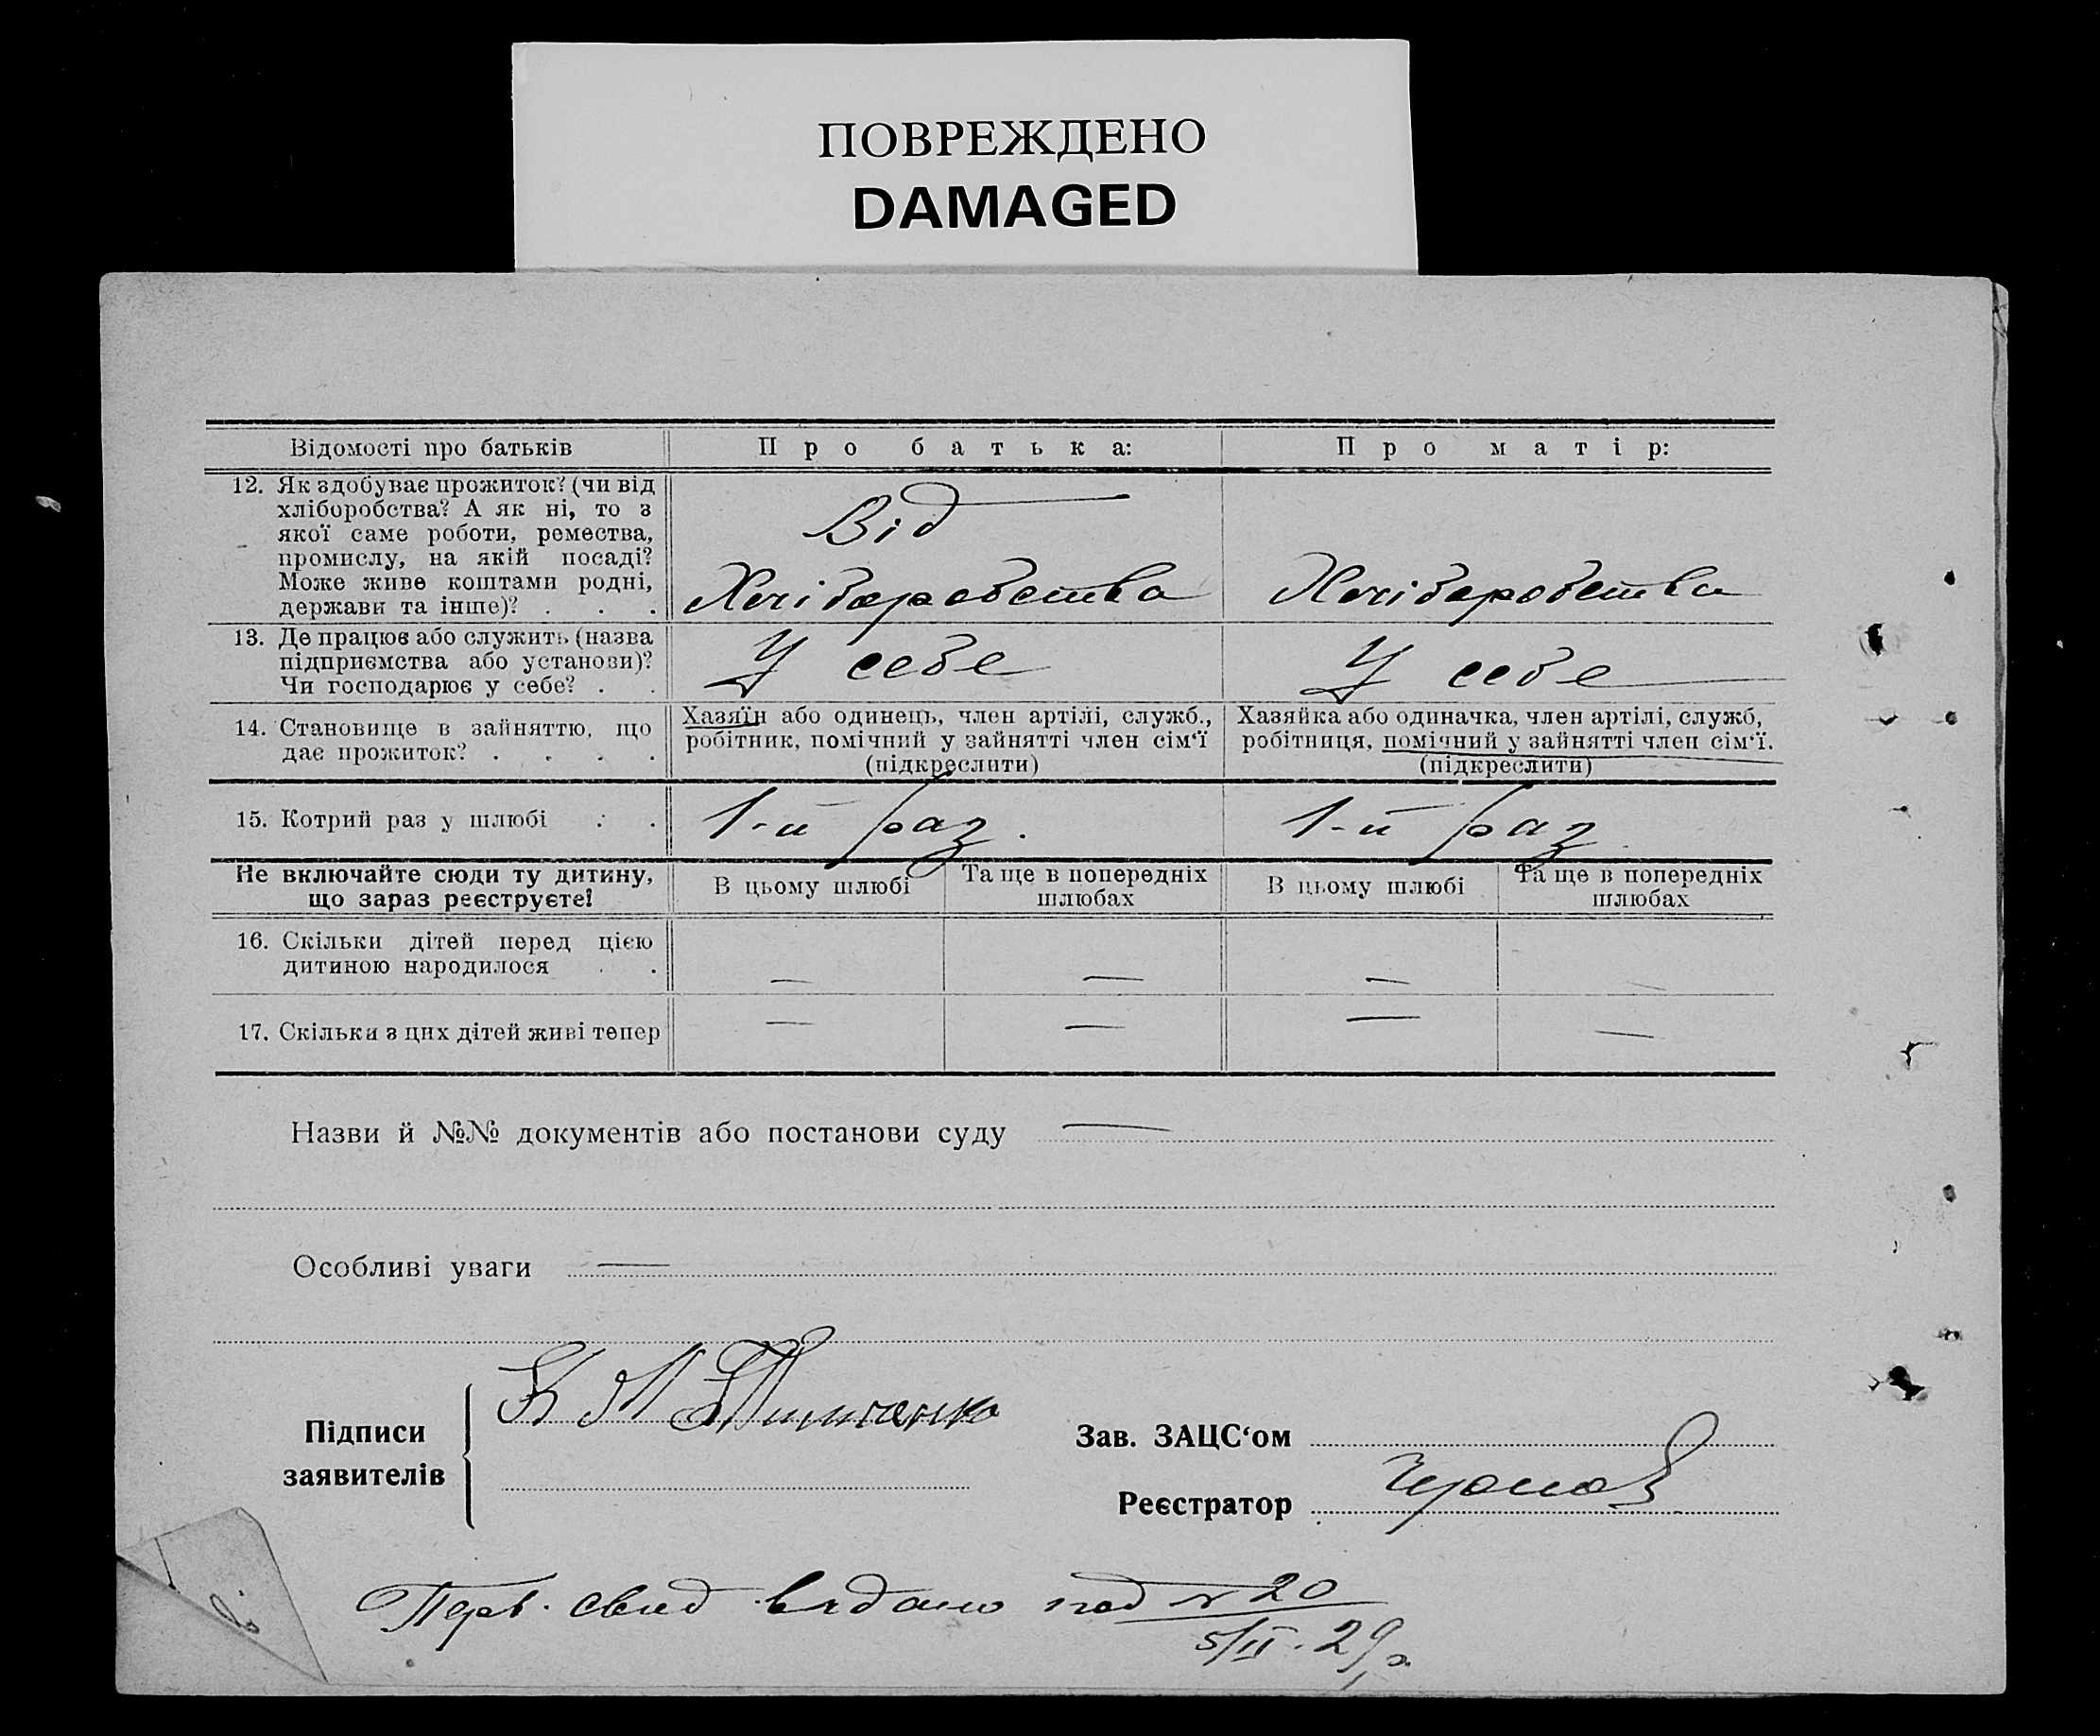 ПОВРЕЖДЕНО
DAMAGED
Відомості про батьків
Про батька:
Про матір:
12. Як здобуває прожиток? (чи від
хліборобства? А як ні, то з
якої саме роботи, ремества,
промислу, на якій посаді?
Може живе коштами родні,
держави та інше)? . . .
Від
Хліборобства
Хліборобства
13. Де працює або служить (назва
підприємства або установи)?
Чи господарює у себе? . .
У себе
У себе
14. Становище в зайняттю, що
дає прожиток? . . . .
Хазяїн або одинець, член артілі, служб.,
робітник, помічний у зайнятті член сім‘ї
(підкреслити)
Хазяйка або одиначка, член артілі, служб,
робітниця, помічний у зайнятті член сім‘ї.
(підкреслити)
15. Котрий раз у шлюбі . .
1-й раз.
1-й раз
Не включайте сюди ту дитину,
що зараз реєструєте!
В цьому шлюбі
Та ще в попередніх
шлюбах
В цьому шлюбі
Та ще в попередніх
шлюбах
16. Скільки дітей перед цією
дитиною народилося . .
— — — —
17. Скільки з цих дітей живі тепер
— — — —
Назви й №№ документів або постанови суду —
Особливі уваги —
Підписи
заявителів
К М
Зав. ЗАЦС‘ом
Реєстратор
Перв. свид видано под № 20
5/II. 29 р